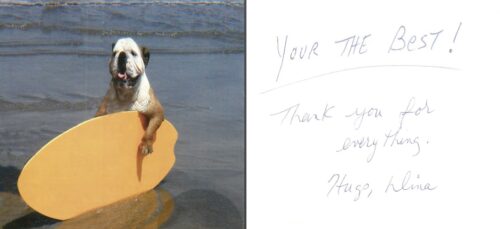 YOUR THE BEST!
Thank you for
everything.
Hugs, Dina